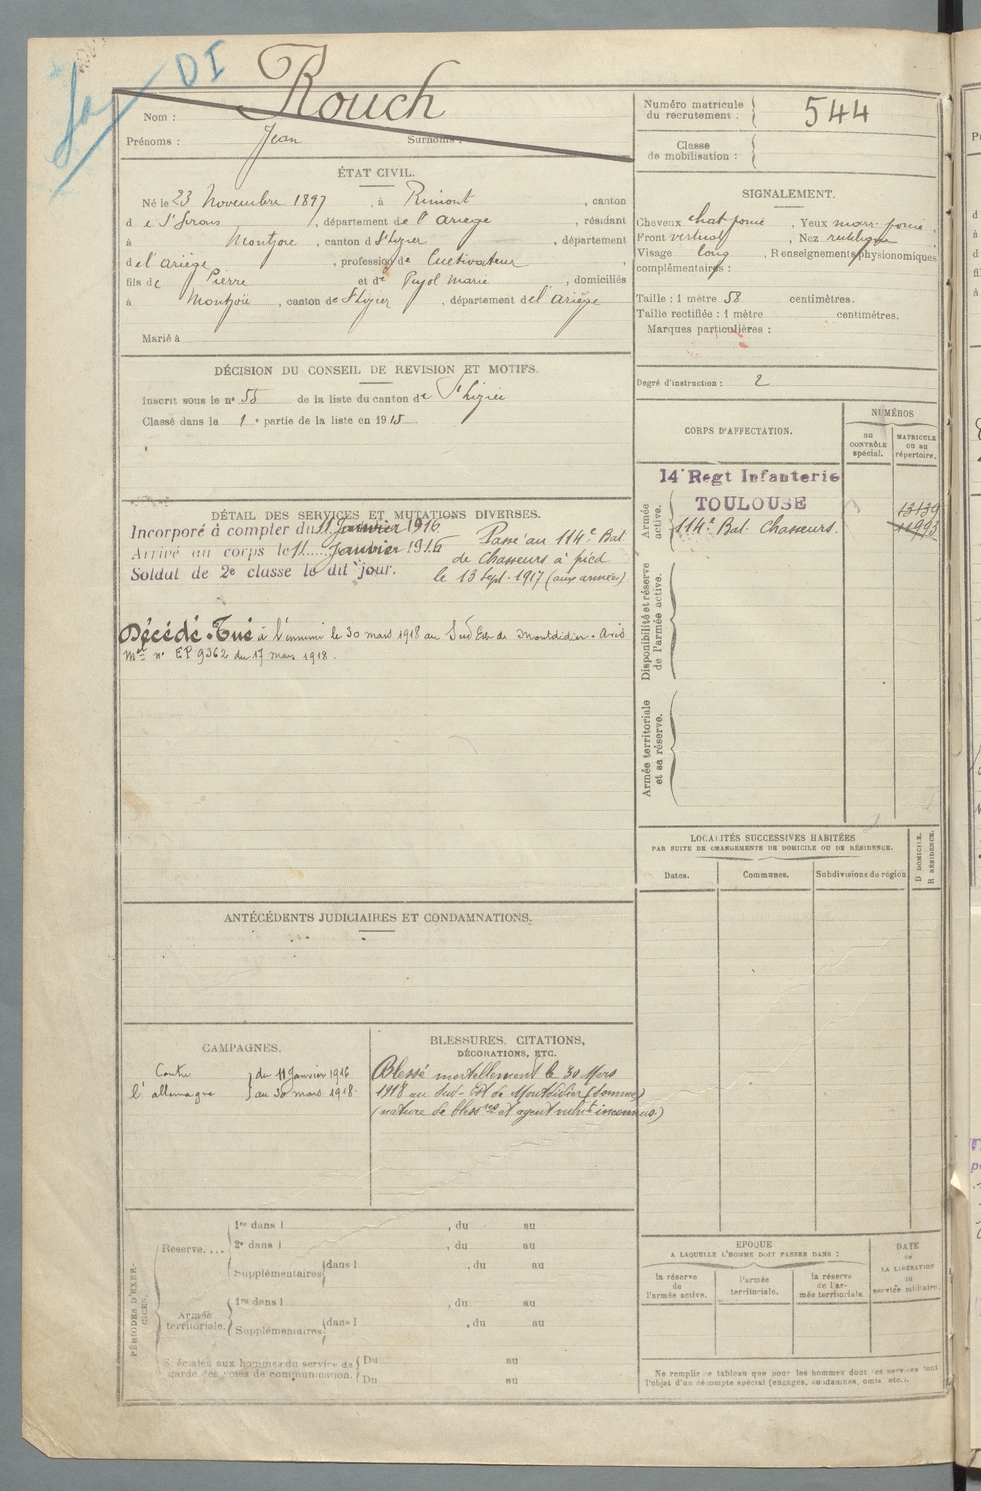 DI
Rouch
Nom :
Prénoms : Jean Surnoms :
Numéro matricule du recrutement : 544
Classe de mobilisation :
ÉTAT CIVIL.
Né le 23 Novembre 1897, à Rimont, canton
de St Girons, département de l'Ariège, résidant
à Montjoie, canton de St Lizier, département
de l'Ariège, profession de Cultivateur,
fils de Pierre et de Pujol Marie, domiciliés
à Montjoie, canton de St Lizier, département de l'Ariège
Marié à
SIGNALEMENT.
Cheveux chat foncé, Yeux marr. foncé,
Front vertical, Nez rectiligne
Visage long, Renseignements physionomiques
complémentaires :
Taille : 1 mètre 58 centimètres.
Taille rectifiée : 1 mètre centimètres.
Marques particulières :
Degré d'instruction : 2
DÉCISION DU CONSEIL DE REVISION ET MOTIFS.
Inscrit sous le n° 55 de la liste du canton de St Lizier
Classé dans la 1re partie de la liste en 1915
CORPS D'AFFECTATION.
NUMÉROS
au CONTRÔLE spécial.
MATRICULE ou au répertoire.
Armée active.
14e Regt Infanterie
TOULOUSE
114e Bat. Chasseurs.
13139
11993
Disponibilité et réserve de l'armée active.
Armée territoriale et sa réserve.
DÉTAIL DES SERVICES ET MUTATIONS DIVERSES.
Incorporé à compter du 11 Janvier 1916
Arrivé au corps le 11 Janvier 1916
Soldat de 2e classe le dit jour.
Passé au 114e Bat.
de Chasseurs à pied
le 13 Sept. 1917 (aux armées)
Décédé. Tué à l'ennemi le 30 mars 1918 au Sud Est de Montdidier. Avis
Mel n° EP 9362 du 17 mars 1918.
LOCALITÉS SUCCESSIVES HABITÉES
PAR SUITE DE CHANGEMENTS DE DOMICILE OU DE RÉSIDENCE.
Dates.
Communes.
Subdivisions de région
D DOMICILE.
R RÉSIDENCE.
ANTÉCÉDENTS JUDICIAIRES ET CONDAMNATIONS.
CAMPAGNES.
Contre l'allemagne
du 11 Janvier 1916
au 30 mars 1918
BLESSURES, CITATIONS,
DÉCORATIONS, ETC.
Blessé mortellement le 30 Mars
1918 au Sud-Est de Montdidier (Somme)
(nature de blessres et agent vulnt inconnus)
PÉRIODES D'EXERCICES.
Réserve....
1re dans l , du au
2e dans l , du au
Supplémentaires dans l , du au
Armée territoriale.
1re dans l , du au
Supplémentaires dans l , du au
Spéciales aux hommes du service de garde des voies de communication.
Du au
Du au
EPOQUE
A LAQUELLE L'HOMME DOIT PASSER DANS :
la réserve de l'armée active.
l'armée territoriale.
la réserve de l'armée territoriale.
DATE de LA LIBÉRATION du service militaire.
Ne remplir ce tableau que pour les hommes dont les services font
l'objet d'un décompte spécial (engagés, condamnés, omis, etc.).